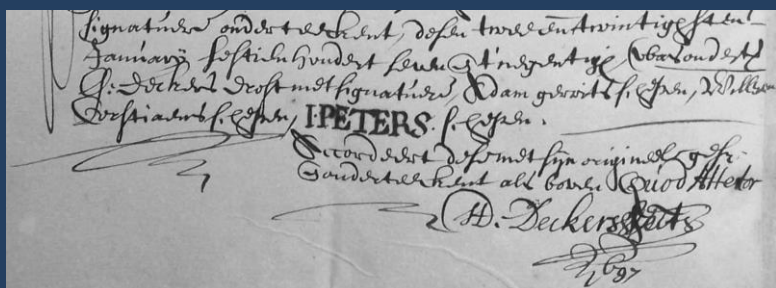 signature onderteekent, desen twee en twintighsten
January sestien hondert seven t'negentigh, was ondert
Deckers drost met signature, Adam gerrits schepen, Willem
Corstiaens schepen, I·PETERS· schepen.
Accordeert dese met sijn origineel, gesc.
onderteekent als boven Quod Attestor
H. Deckers Secrts
1697